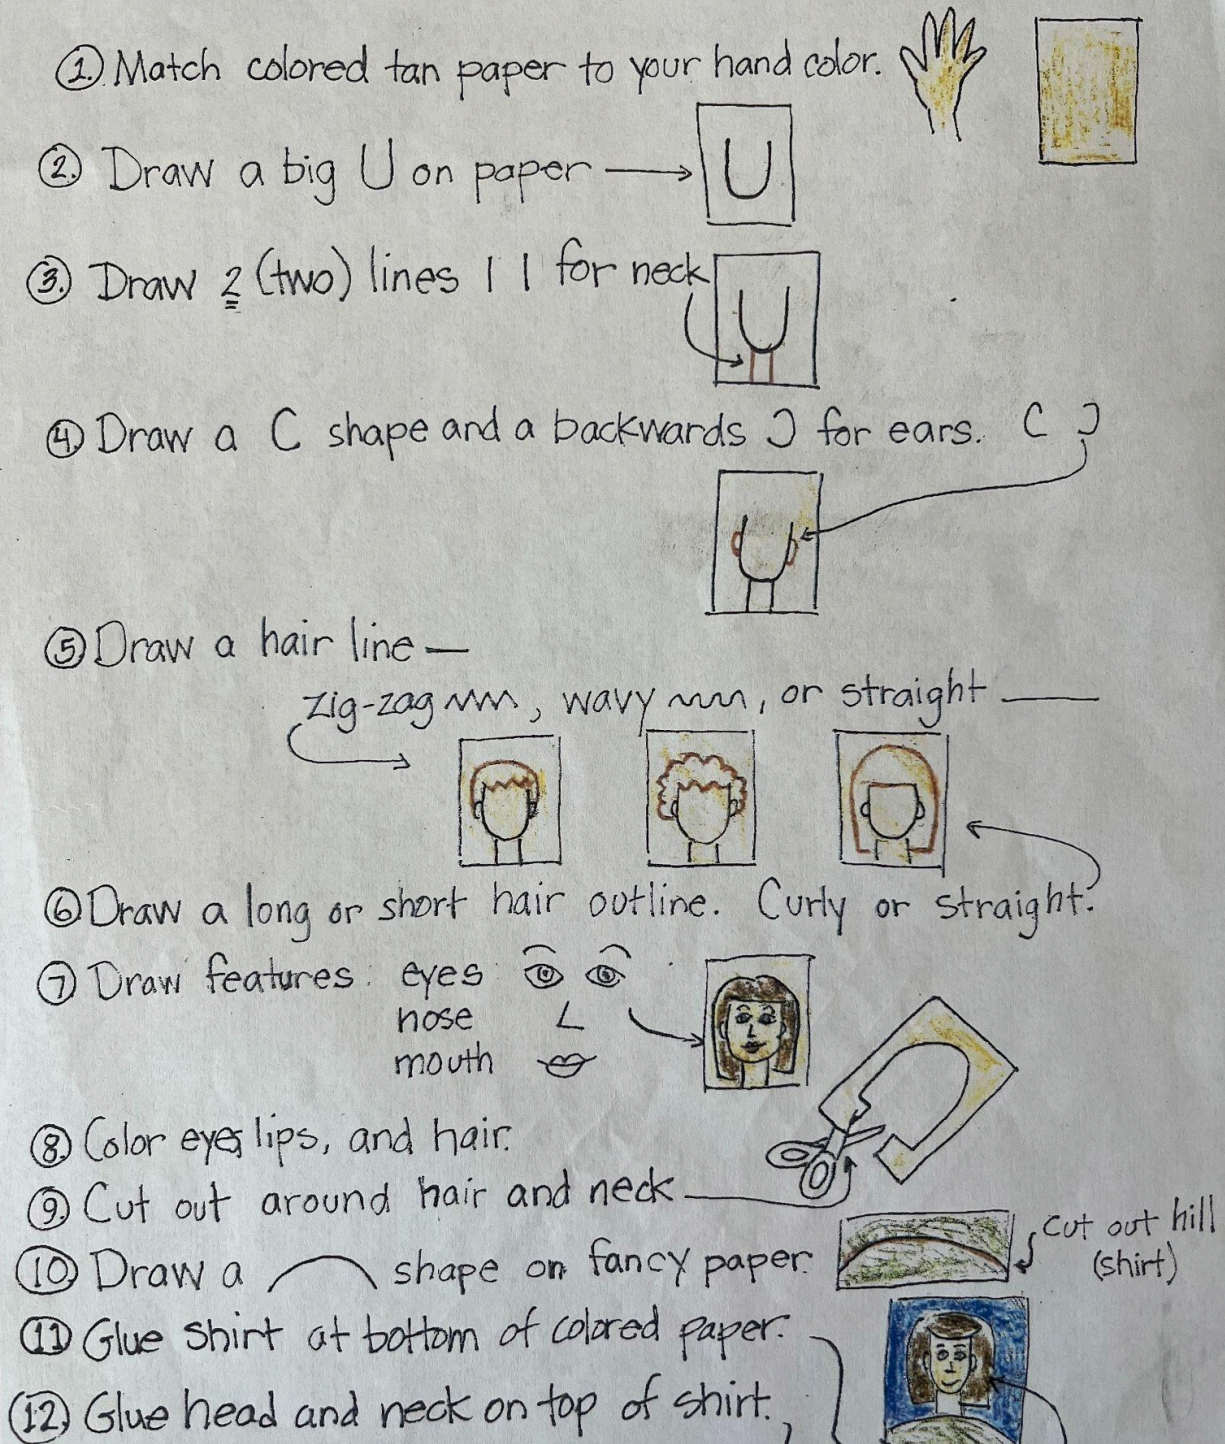 1. Match colored tan paper to your hand color.
2. Draw a big U on paper
3. Draw 2 (two) lines | | for neck
4. Draw a C shape and a backwards Ɔ for ears. C Ɔ
5. Draw a hair line —
zig-zag, wavy, or straight
6. Draw a long or short hair outline. Curly or straight?
7. Draw features: eyes
nose
mouth
8. Color eyes, lips, and hair.
9. Cut out around hair and neck
10. Draw a shape on fancy paper.
cut out hill
(shirt)
11. Glue shirt at bottom of colored paper.
12. Glue head and neck on top of shirt.